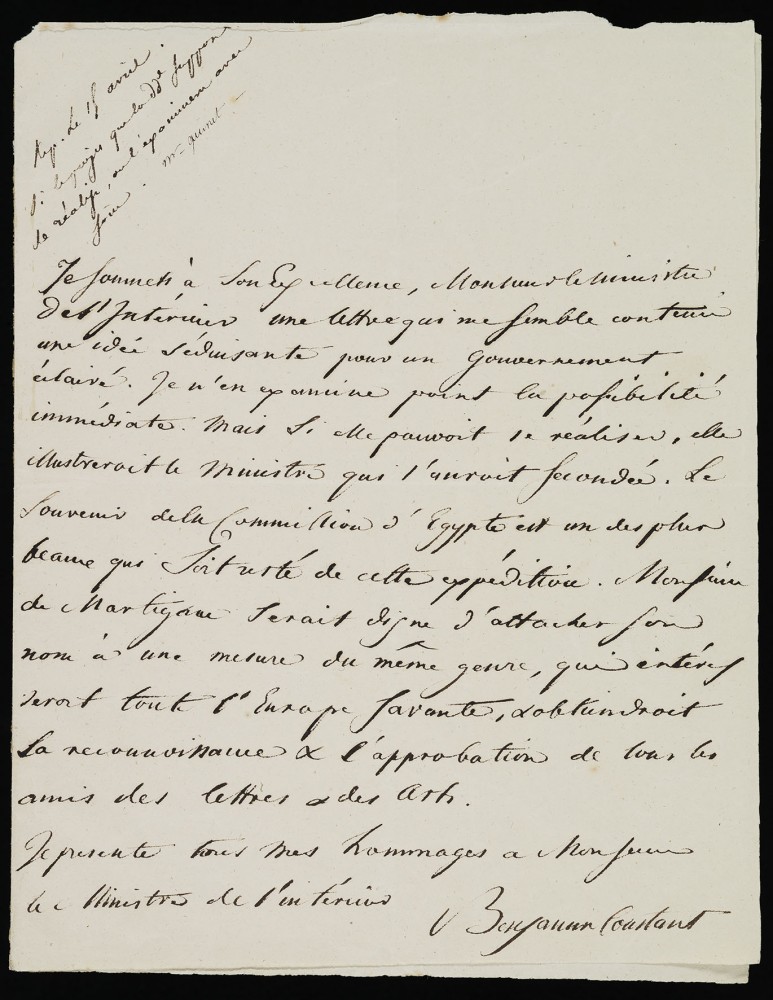 Rep. Le 15 avril.
Si le projet que la dde suppose
se réalise, on l'examinera avec
soin. mr quinet
Je soumets à Son Excellence, Monsieur le Ministre
De l'Intérieur une lettre qui me semble contenir
une idée séduisante pour un gouvernement
éclairé. Je n'en examine point la possibilité
immédiate. Mais si elle pouvoit se réaliser, elle
illustreroit le Ministre qui l'auroit secondée. Le
souvenir de la Commission d'Egypte est un des plus
beaux qui soit resté de cette expédition. Monsieur
de Martignac serait digne d'attacher son
nom à une mesure du même genre, qui intéres
seroit toute l'Europe savante, & obtiendroit
la reconnoissance & l'approbation de tous les
amis des lettres & des Arts.
Je présente tous mes hommages a Monsieur
le Ministre de l'intérieur
Benjamin Constant